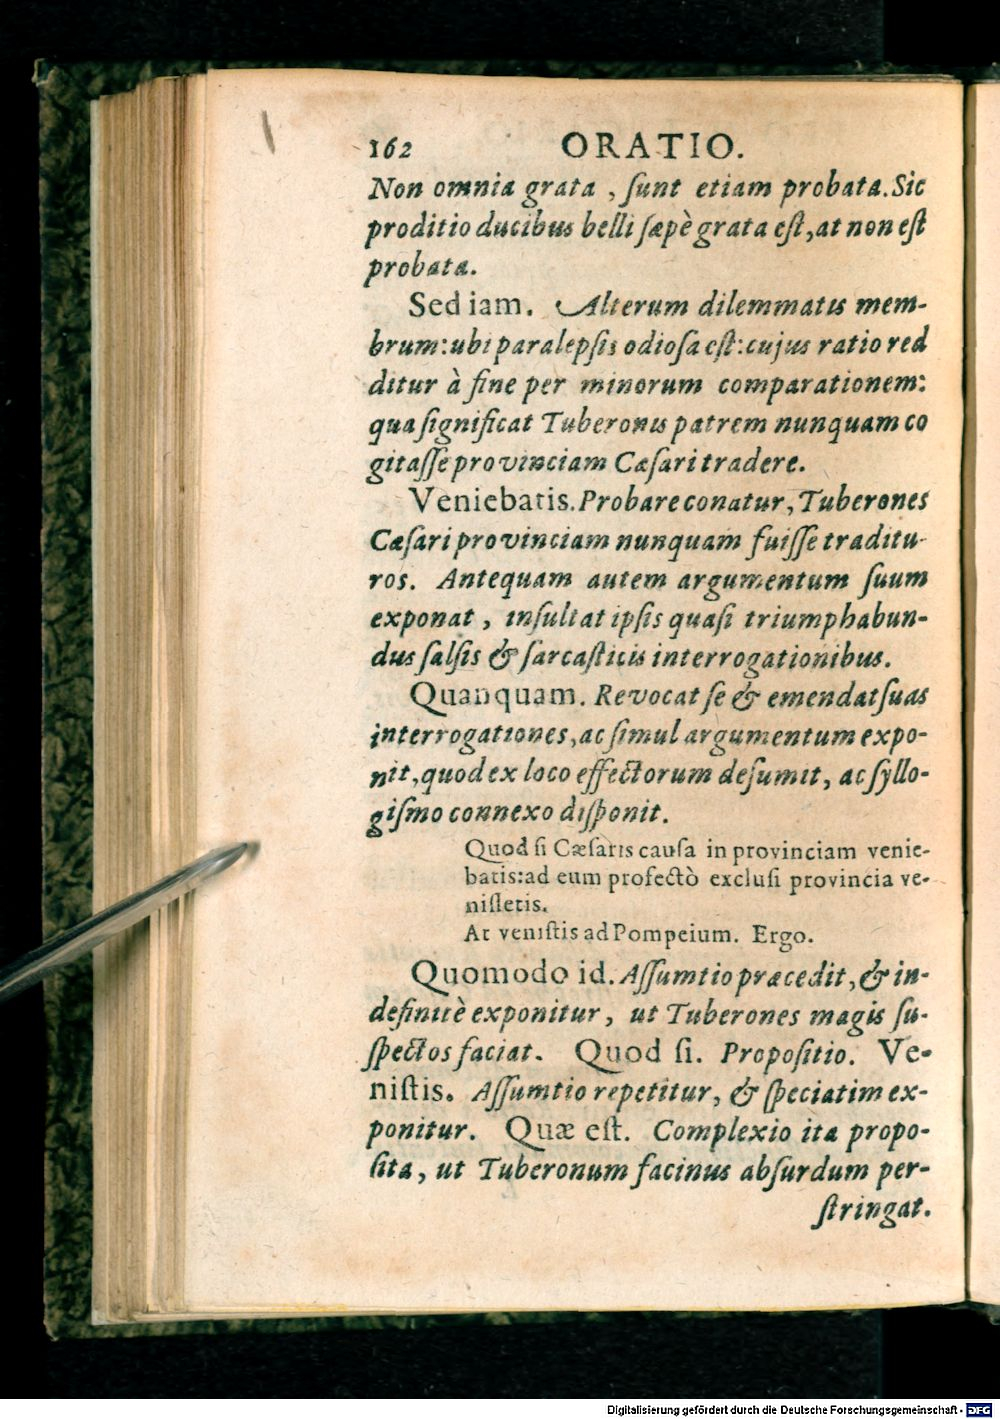 162 ORATIO.
Non omnia grata , sunt etiam probata. Sic
proditio ducibus belli sæpè grata est, at non est
probata.
Sed iam. Alterum dilemmatis mem-
brum: ubi paralepsis odiosa est: cujus ratio red
ditur à fine per minorum comparationem:
qua significat Tuberonis patrem nunquam co
gitasse provinciam Cæsari tradere.
Veniebatis. Probare conatur, Tuberones
Cæsari provinciam nunquam fuisse traditu-
ros. Antequam autem argumentum suum
exponat , insultat ipsis quasi triumphabun-
dus salsis & sarcasticis interrogationibus.
Quanquam. Revocat se & emendat suas
interrogationes, ac simul argumentum expo-
nit, quod ex loco effectorum desumit, ac syllo-
gismo connexo disponit.
Quod si Cæsaris causa in provinciam venie-
batis: ad eum profectò exclusi provincia ve-
nissetis.
At venistis ad Pompeium. Ergo.
Quomodo id. Assumtio præcedit, & in-
definitè exponitur, ut Tuberones magis su-
spectos faciat. Quod si. Propositio. Ve-
nistis. Assumtio repetitur, & speciatim ex-
ponitur. Quæ est. Complexio ita propo-
sita, ut Tuberonum facinus absurdum per-
stringat.
Digitalisierung gefördert durch die Deutsche Forschungsgemeinschaft - DFG